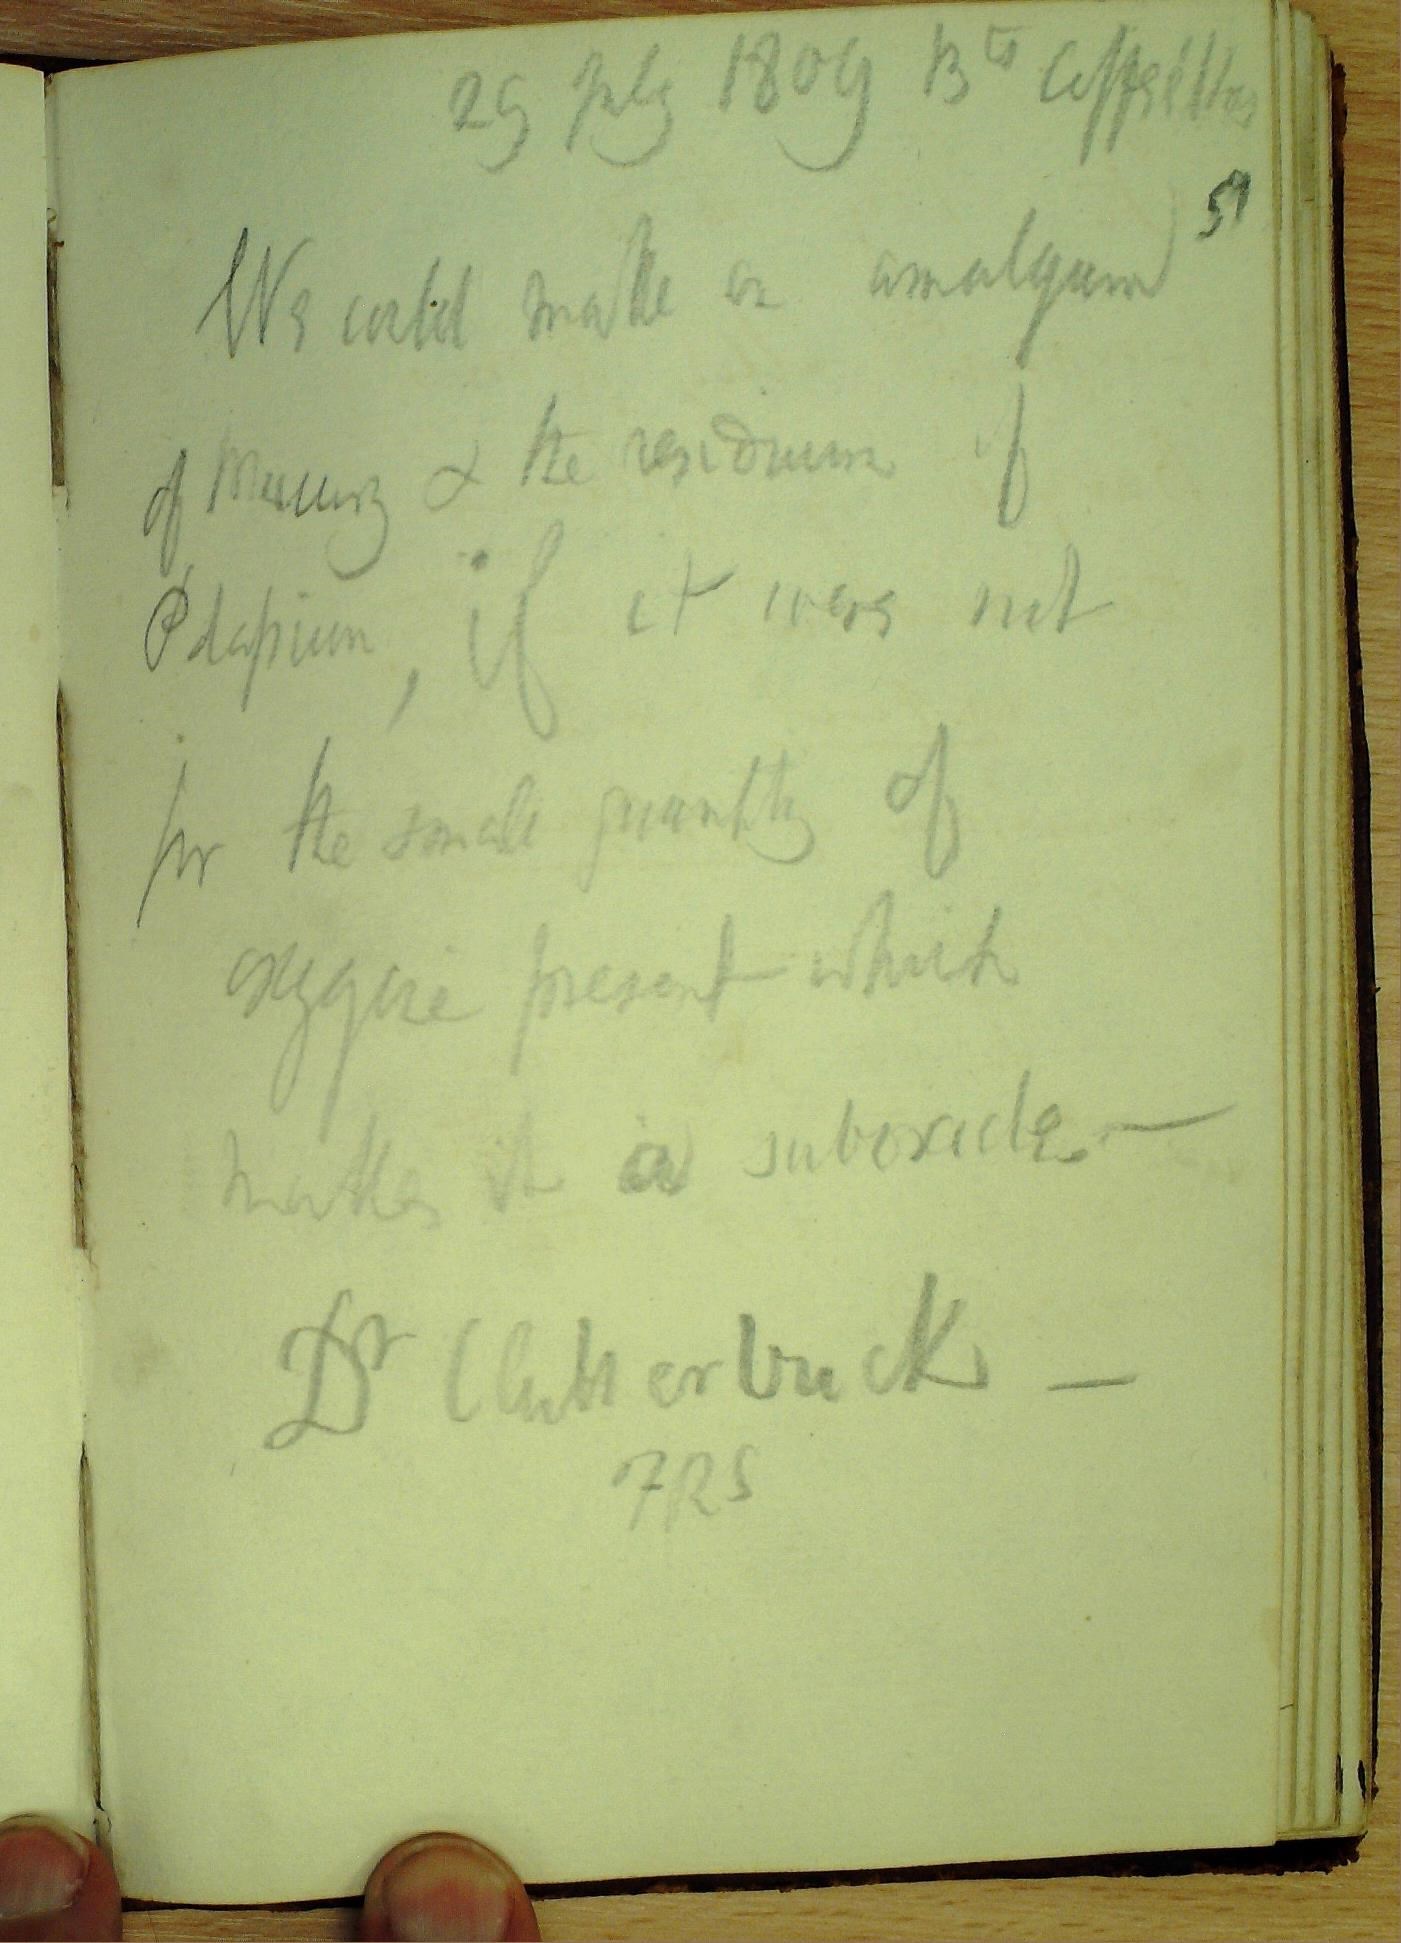 29 July 1809 B
51
We could make an amalgam
of Mercury & the residuum if
Potassium, if it were not
for the small quantity of
oxygene present which
makes it a suboxide. —
Dr Clutterbuck —
FRS